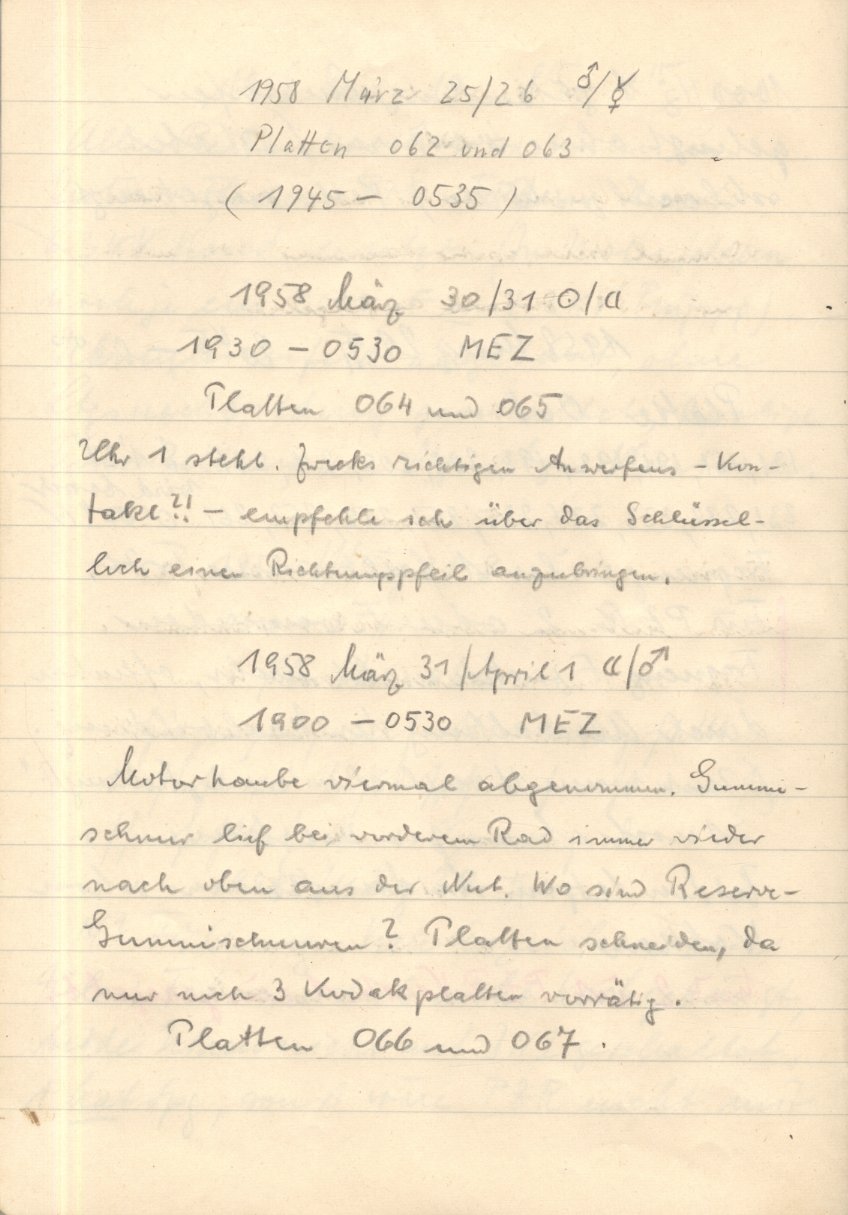 1958 März 25/26 ♂/☿
Platten 062 und 063
(1945 – 0535)
1958 März 30/31 ☉/☾
1930 – 0530 MEZ
Platten 064 und 065
Uhr 1 steht. Zwecks richtigen Anwerfens – Kon-
takt?! – empfehle ich über das Schlüssel-
loch einen Richtungspfeil anzubringen.
1958 März 31/April 1 ☾/♂
1900 – 0530 MEZ
Motorhaube viermal abgenommen. Gummi-
schnur lief bei vorderem Rad immer wieder
nach oben aus der Nut. Wo sind Reserve-
Gummischnuren? Platten schneiden, da
nur noch 3 Kodakplatten vorrätig.
Platten 066 und 067.